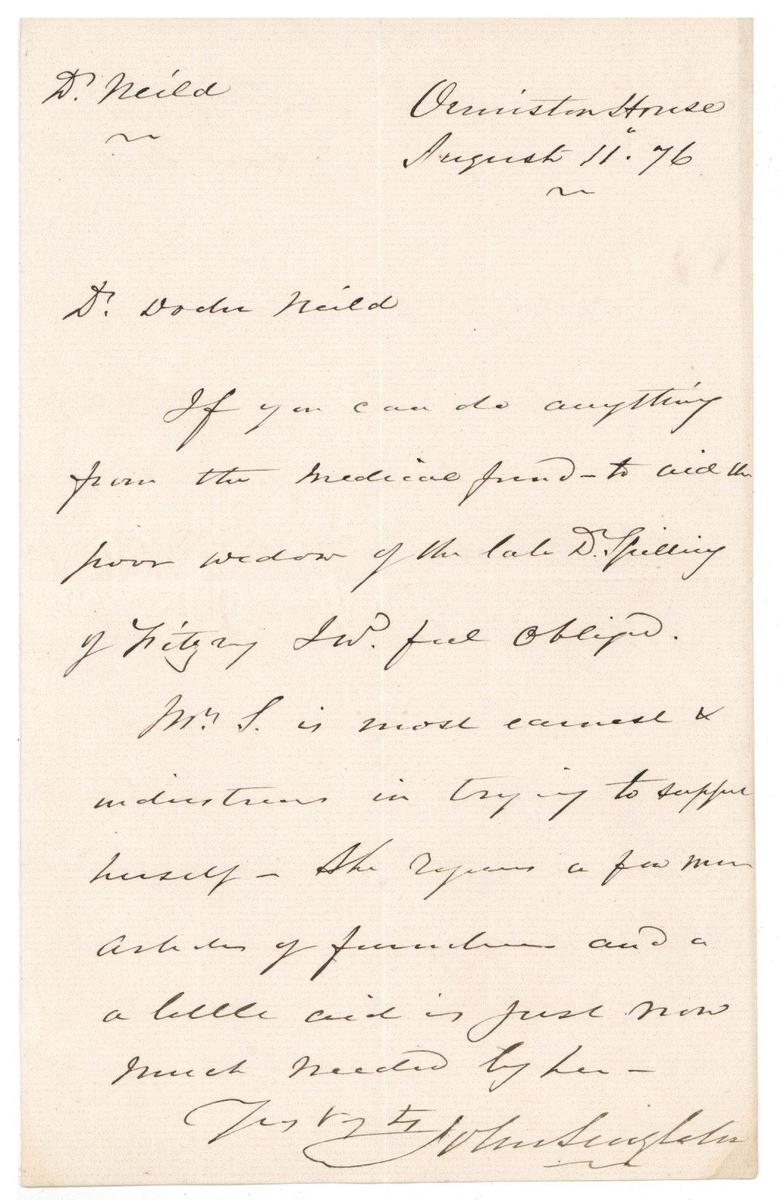 Dr. Neild
Ormiston House
August 11. 76
Dr. Doctor Neild
If you can do anything
from the medical fund - to aid the
poor widow of the late Dr. Spilling
of Fitzroy I wd. feel obliged.
Mrs. S. is most earnest &
industrious in trying to support
herself - She requires a few more
articles of furniture and a
a little aid is just now
much needed by her -
Yrs vy ty John Singleton